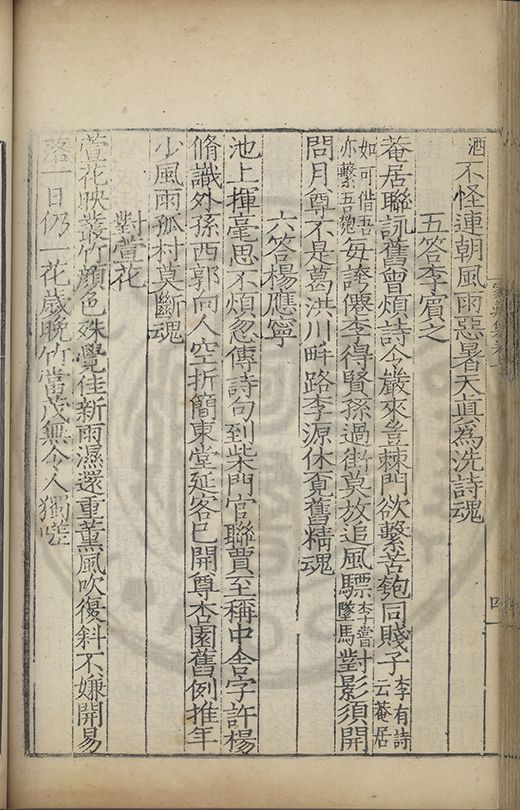 酒不怪連朝風雨惡暑天真為洗詩魂
五答李賓之
菴居聯訊舊曾煩詩令嚴來豈棘門欲繫苦匏同賤子李有詩云菴居
如可借吾亦繫吾匏每誇僊李得賢孫過街莫放追風驃李嘗墜馬對影須開
問月尊不是葛洪川畔路李源休覓舊精魂
六答楊應寧
池上揮毫思不煩忽傳詩句到柴門官聯賈至稱中舍字許楊
脩識外孫西郭向人空折簡東堂延客已開尊杏園舊例推年
少風雨孤村莫斷魂
對萱花
萱花映叢竹顔色殊覺佳新雨濕還重薰風吹復斜不嫌開易
落一日仍一花歲晚竹當茂無令人獨嗟